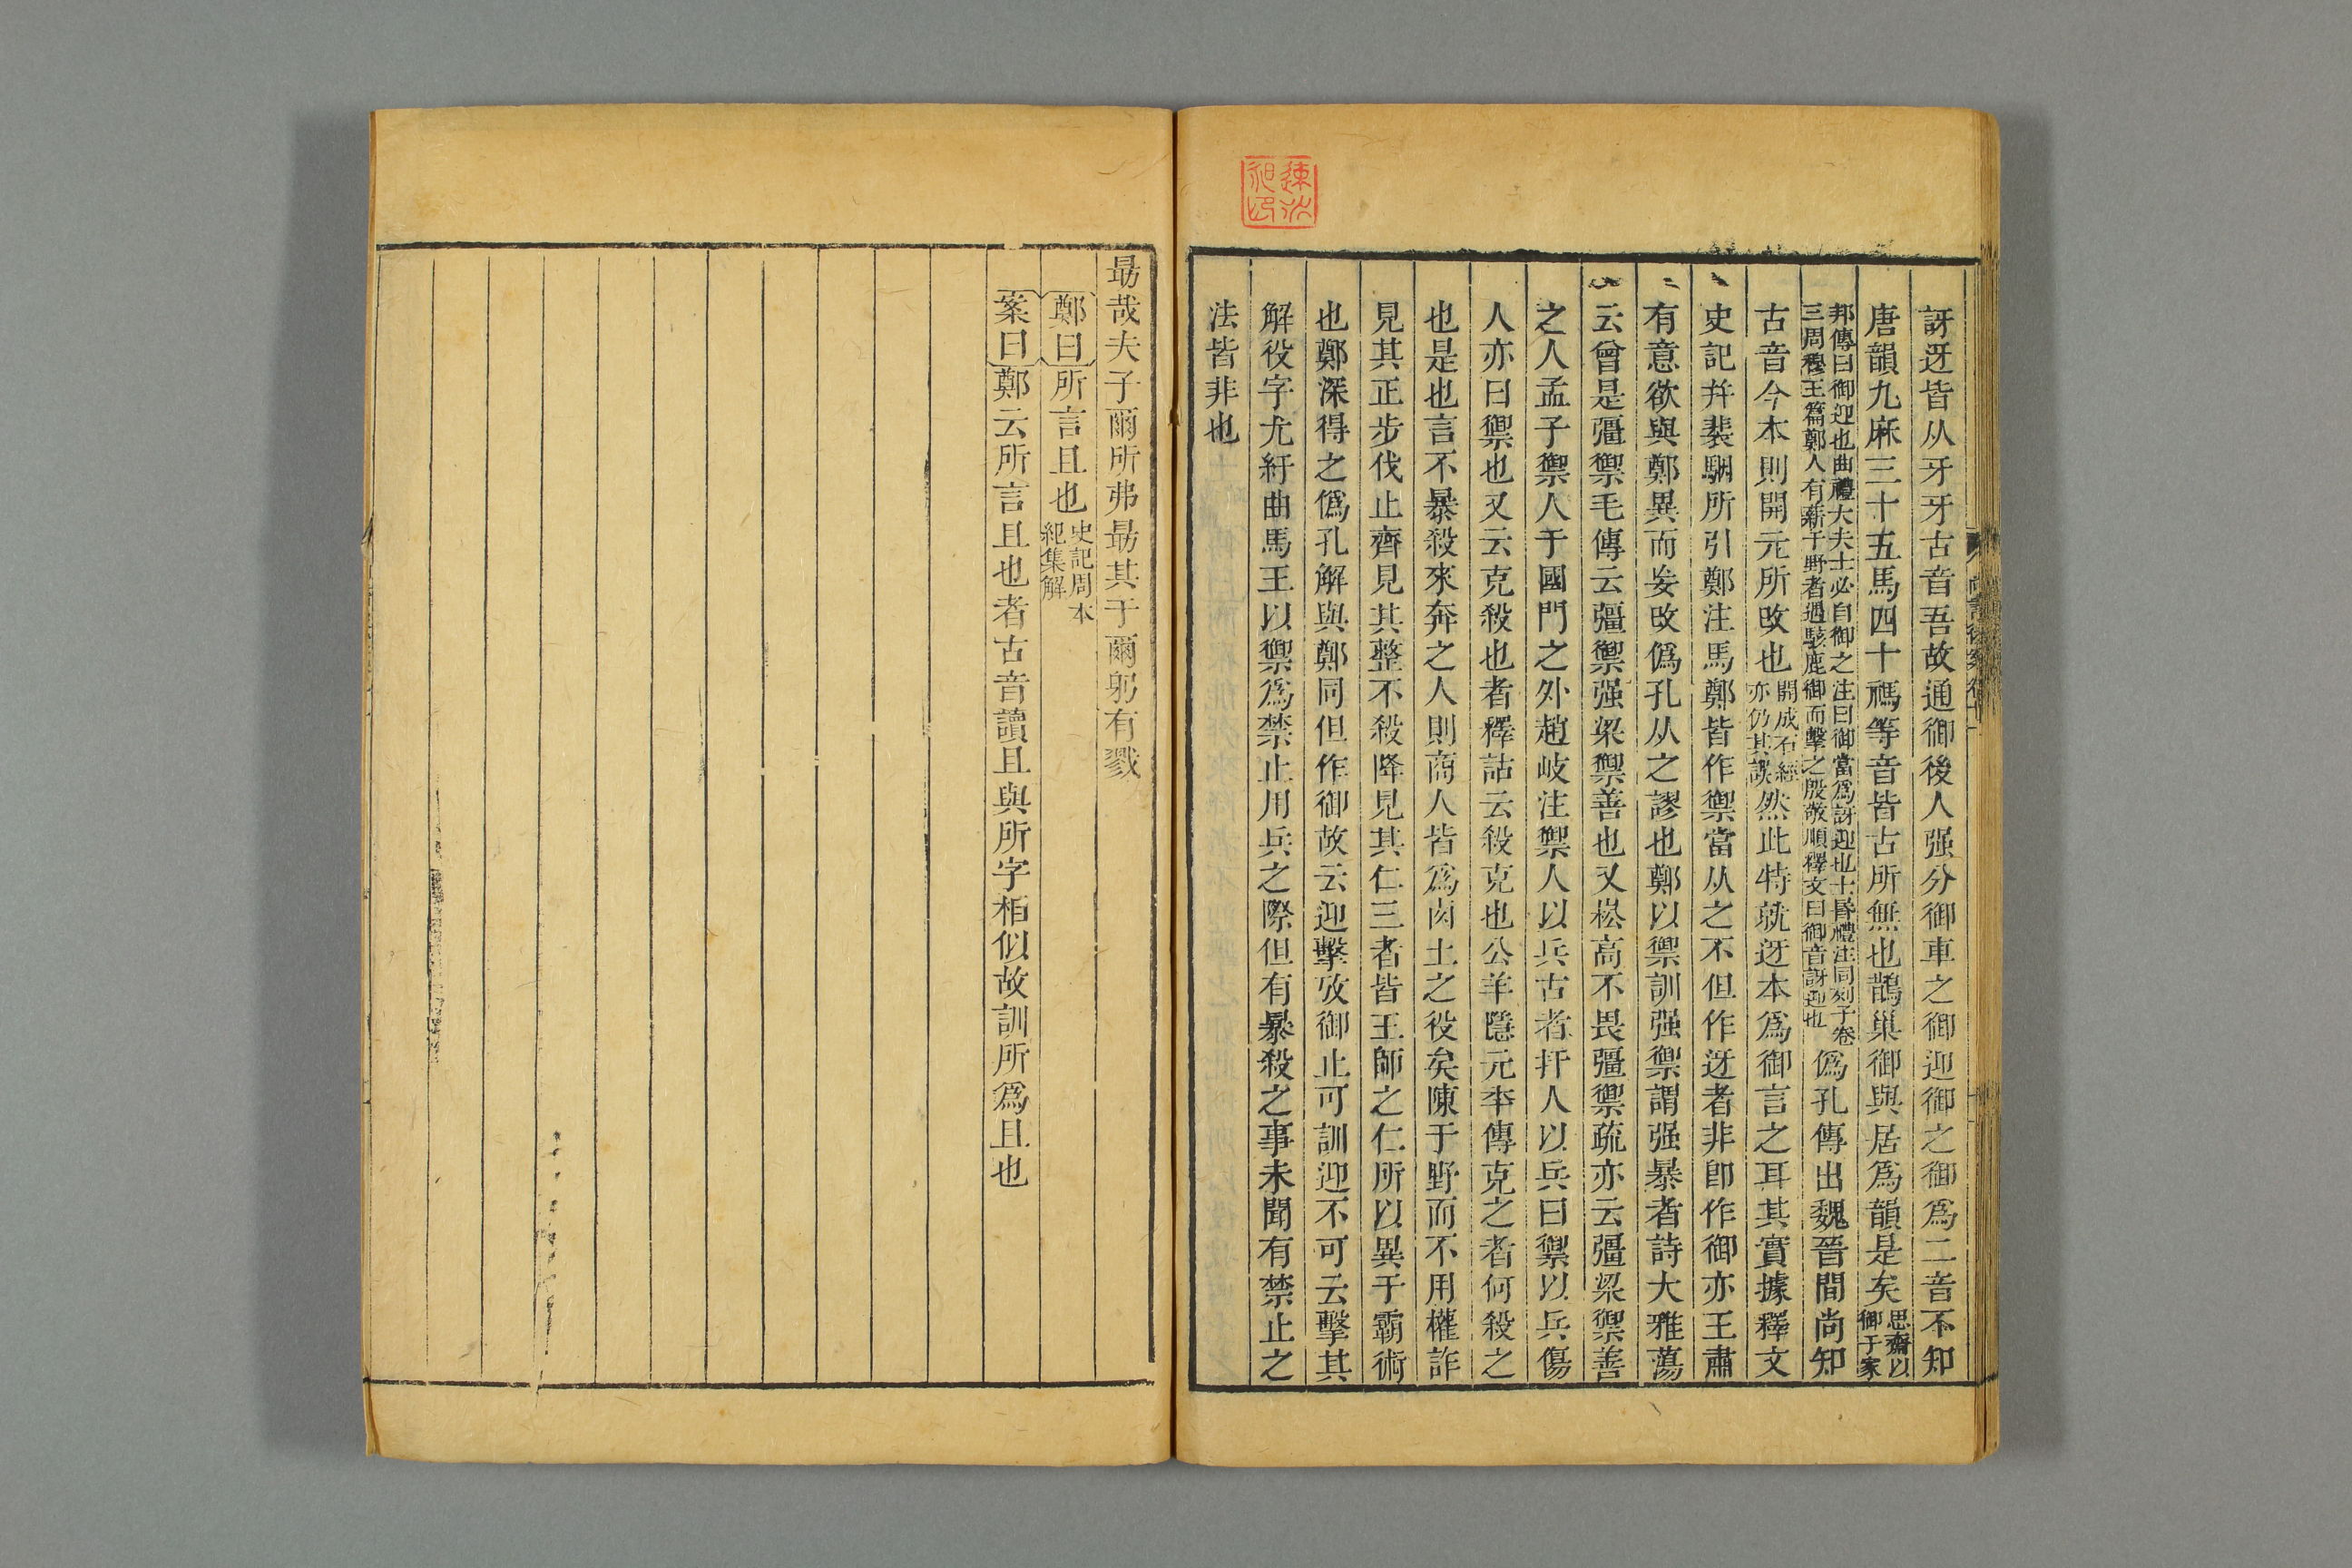 訝迓皆从牙牙古音吾故通御後人强分御車之御迎御之御爲二音不知
唐韻九麻三十五馬四十禡等音皆古所無也鵲巢御與居爲韻是矣思齊以御于家
邦傳曰御迎也曲禮大夫士必自御之注曰御當爲訝迎也士昏禮注同列子卷三周穆王篇鄭人有薪于野者遇駭鹿御而擊之殷敬順釋文曰御音訝迎也僞孔傳出魏晉間尚知
古音今本則開元所改也開成石經亦仍其誤然此特就迓本爲御言之耳其實據釋文
史記幷裴駰所引鄭注馬鄭皆作禦當从之不但作迓者非卽作御亦王肅
有意欲與鄭異而妄改僞孔从之謬也鄭以禦訓强禦謂强暴者詩大雅蕩
云曾是彊禦毛傳云彊禦强梁禦善也又崧高不畏彊禦疏亦云彊梁禦善
之人孟子禦人于國門之外趙岐注禦人以兵古者扞人以兵曰禦以兵傷
人亦曰禦也又云克殺也者釋詁云殺克也公羊隱元年傳克之者何殺之
也是也言不暴殺來奔之人則商人皆爲西土之役矣陳于野而不用權詐
見其正步伐止齊見其整不殺降見其仁三者皆王師之仁所以異于霸術
也鄭深得之僞孔解與鄭同但作御故云迎擊攷御止可訓迎不可云擊其
解役字尤紆曲馬王以禦爲禁止用兵之際但有暴殺之事未聞有禁止之
法皆非也
勗哉夫子爾所弗勗其于爾躬有戮
鄭曰所言且也史記周本紀集解
案曰鄭云所言且也者古音讀且與所字相似故訓所爲且也